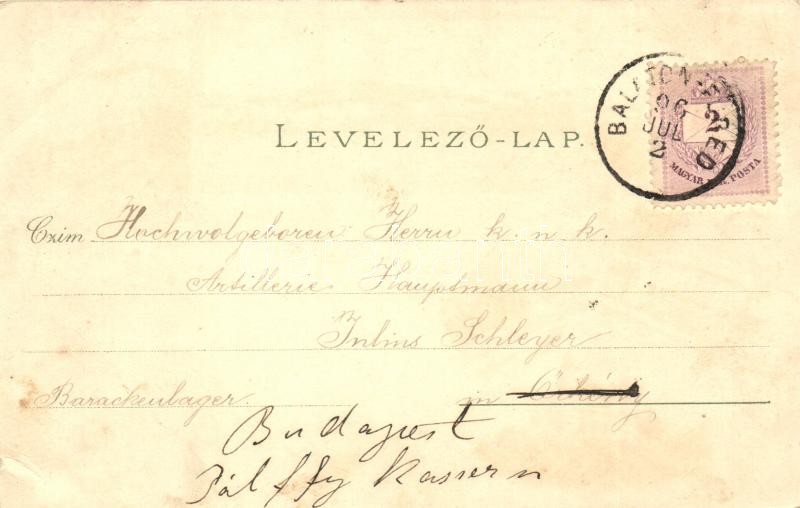 LEVELEZŐ-LAP.
BALATON-FÜRED
96
JUL
2
MAGYAR KIR. POSTA
Czim Hochwolgeboren Herrn k. n k.
Artillerie Hauptmann
Julius Schleyer
Barackenlager. in Örkény
Budapest
Pálffy Kassern